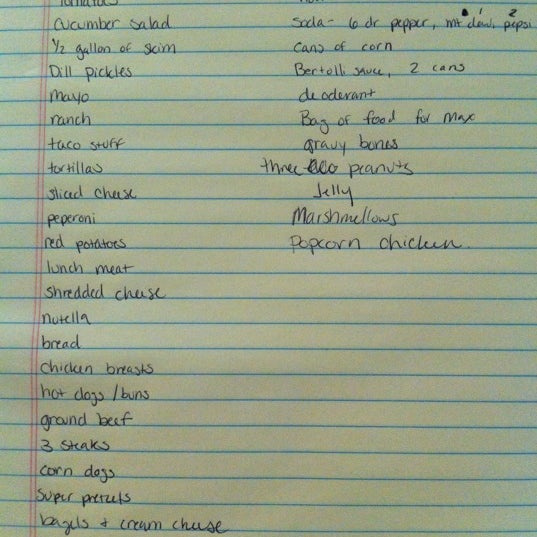 tomatoes
cucumber salad
1/2 gallon of skim
Dill pickles
mayo
ranch
taco stuff
tortillas
sliced cheese
peperoni
red potatoes
lunch meat
shredded cheese
nutella
bread
chicken breasts
hot dogs / buns
ground beef
3 steaks
corn dogs
super pretzels
bagels + cream cheese
Soda- 6 dr pepper, 1 mt dew, 2 pepsi
cans of corn
Bertolli sauce, 2 cans
deoderant
Bag of food for Max
gravy bones
three peanuts
Jelly
Marshmellows
Popcorn chicken.